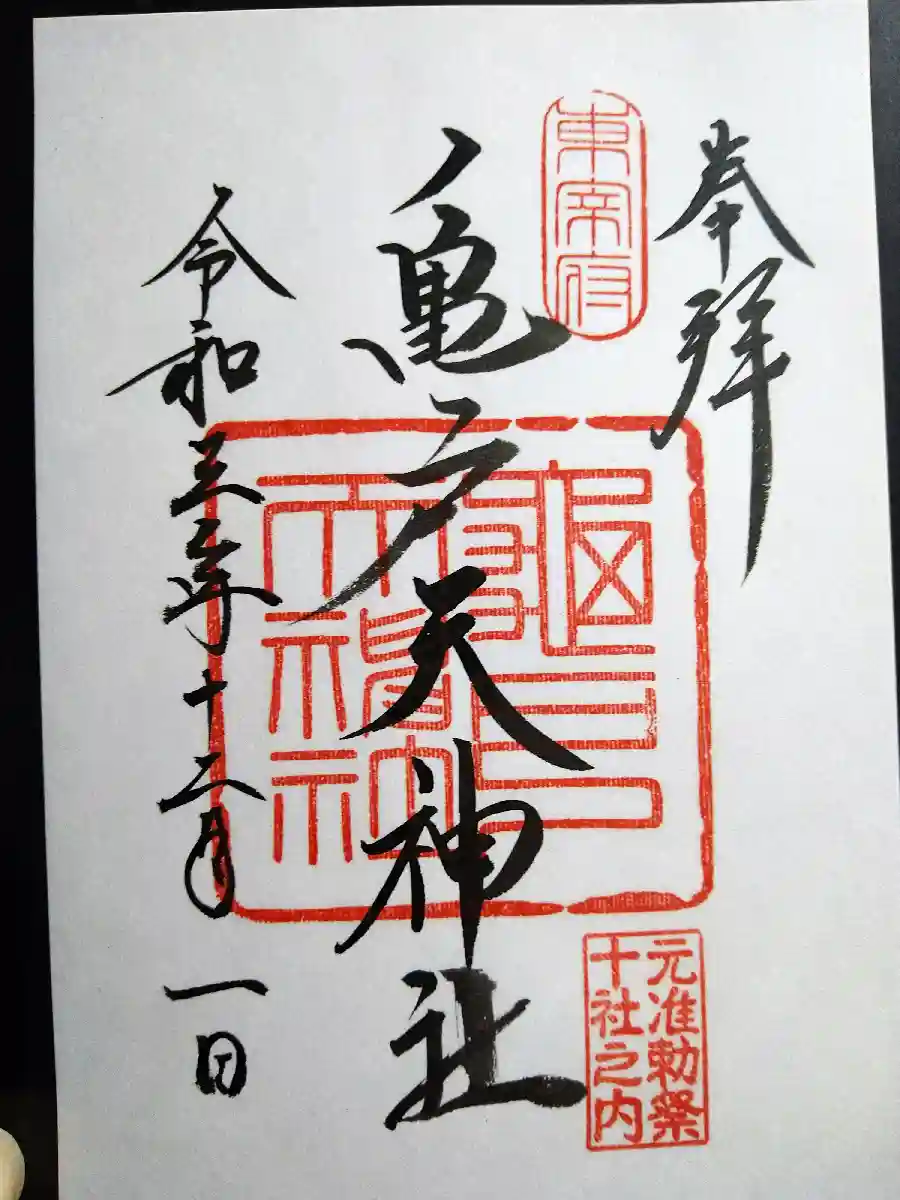 奉拝
東宰府
元准勅祭
十社之内
亀戸天神社
令和三年十二月一日